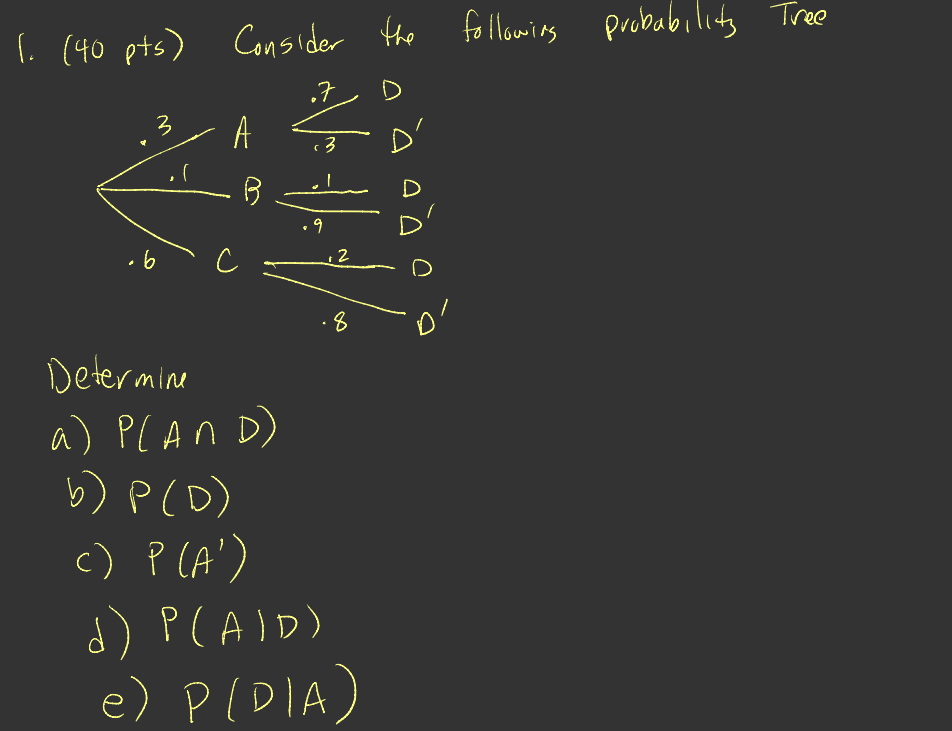 1. (40 pts) Consider the following probability Tree
.7 D
.3 A .3 D'
.1 B .1 D
.9 D'
.6 C .2 D
.8 D'
Determine
a) P(A ∩ D)
b) P(D)
c) P(A')
d) P(A|D)
e) P(D|A)